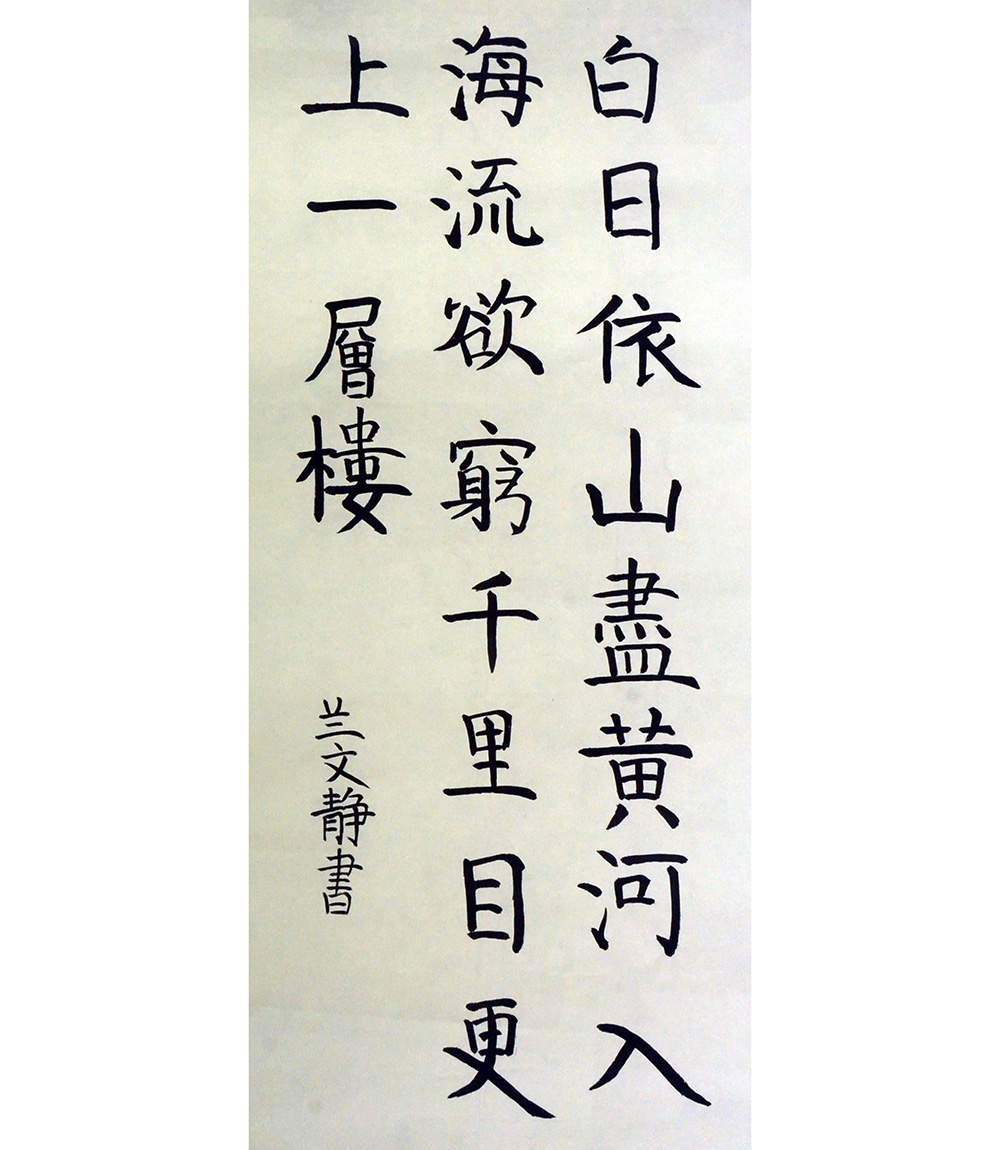 白日依山盡黄河入
海流欲窮千里目更
上一層樓
兰文静書